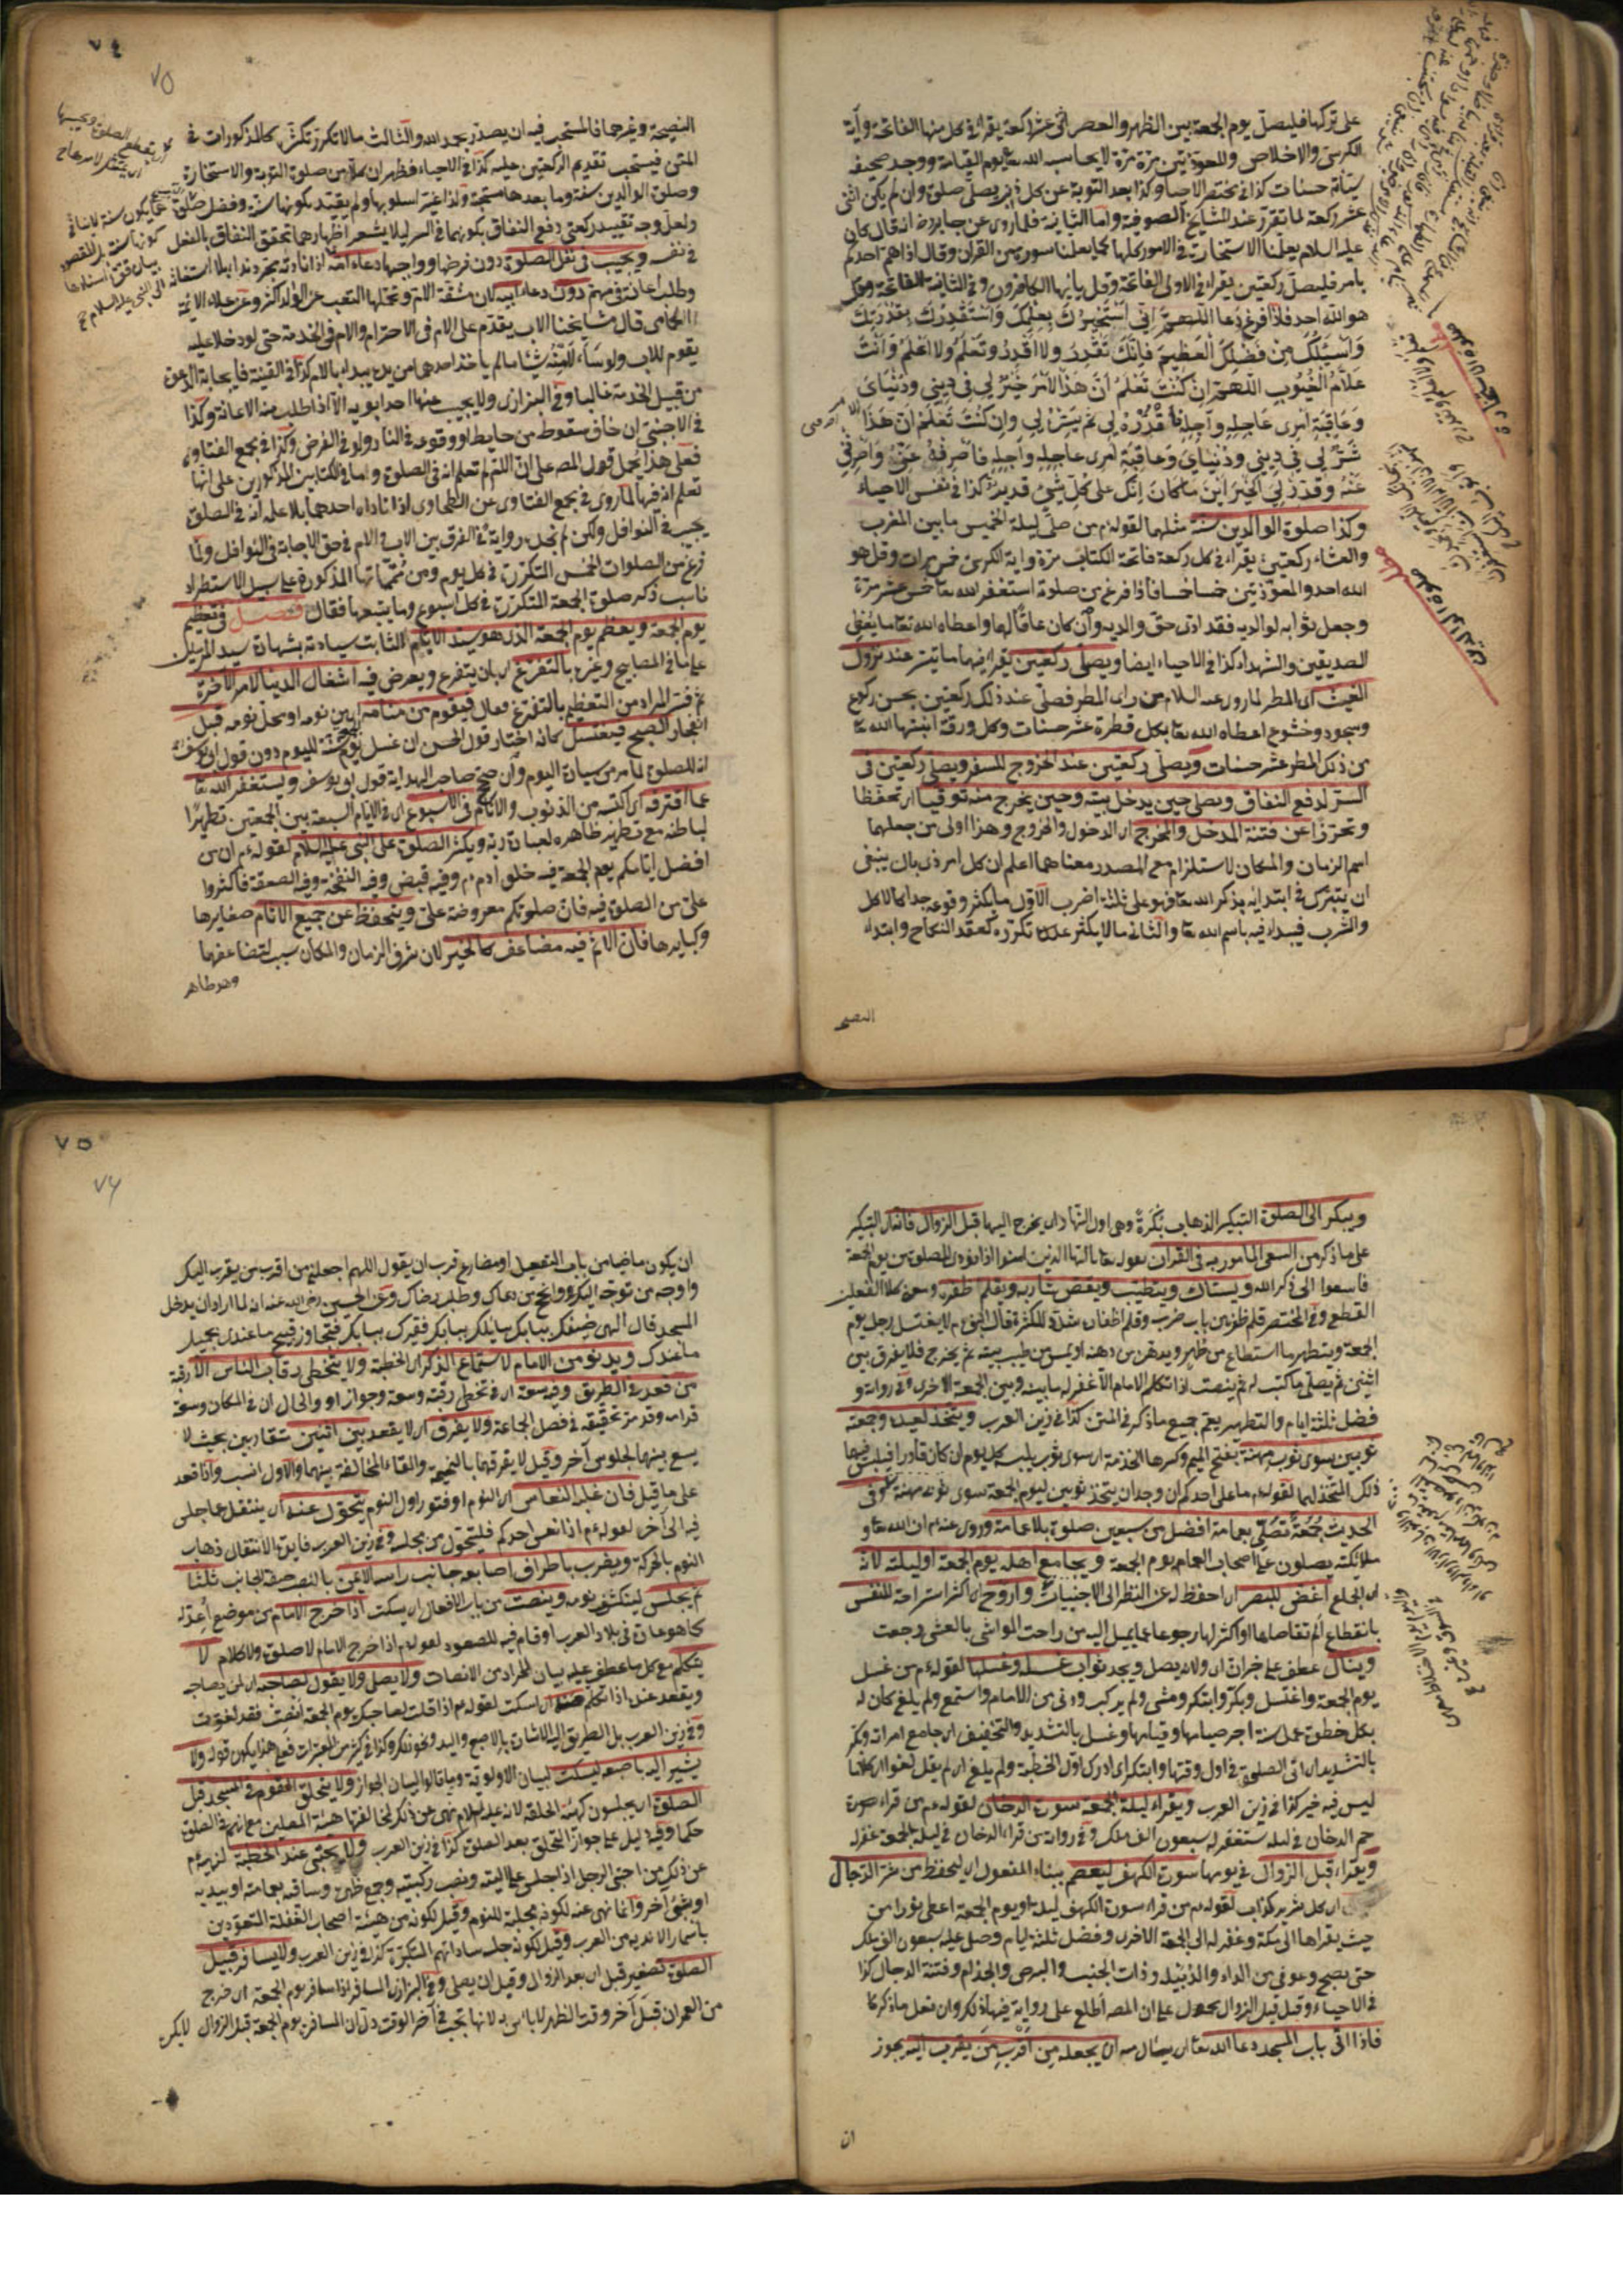 على تركها فليصل يوم الجمعة بين الظهر والعصر اثنى عشر ركعة يقراء في كل منها الفاتحة وآية
الكرسي والاخلاص والمعوذتين مرة مرة لا يحاسبه الله تعا يوم القيامة ووجد صحيفه
سيئاته حسنات كذا في مختصر الاحياء وكذا بعد التوبة عن كل ذنب يصلى صلوة وان لم يكن اثنى
عشر ركعة لما تقرر عند المشايخ الصوفية واما الثانية فلما روى عن جابر رضه انه قال كان
عليه السلام يعلمنا الاستخارة في الامور كلها كما يعلمنا سورة من القرآن وقال اذا هم احدكم
بامر فليصل ركعتين يقراء في الاولى الفاتحة وقل يا ايها الكافرون وفي الثانية الفاتحة وقل
هو الله احد فاذا فرغ دعا اللهم اني استخيرك بعلمك واستقدرك بقدرتك
واسئلك من فضلك العظيم فانك تقدر ولا اقدر وتعلم ولا اعلم وانت
علام الغيوب اللهم ان كنت تعلم ان هذا الامر خير لي في ديني ودنياي
وعاقبة امري عاجله وآجله فاقدره لي ثم يسره لي وان كنت تعلم ان هذا
شر لي في ديني ودنياي وعاقبة امري عاجله وآجله فاصرفه عني واصرفني
عنه وقدر لي الخير اين ما كان انك على كل شئ قدير كذا في نفس الاحياء
وكذا صلوة الوالدين سنة مثلها لقوله م من صلى ليلة الخميس ما بين المغرب
والعشاء ركعتين يقراء في كل ركعة فاتحة الكتاب مرة وآية الكرسي خمس مرات وقل هو
الله احد والمعوذتين خمسا خمسا فاذا فرغ من صلوة استغفر الله تعا خمس عشر مرة
وجعل ثوابه لوالديه فقد ادى حق والديه وان كان عاقا لهما واعطاه الله تعا ما يعطى
الصديقين والشهداء كذا في الاحياء ايضا ويصلى ركعتين يقراء فيهما ما تيسر عند نزول
الغيث اى المطر لما روى عنه السلام من راى المطر فصلى عند ذلك ركعتين بحسن ركوع
وسجود وخشوع اعطاه الله تعا بكل قطرة عشر حسنات وكل ورقة انبتها الله تعا
من ذلك المطر عشر حسنات ويصلى ركعتين عند الخروج للسفر ويصلى ركعتين في
السر لدفع النفاق ويصلى حين يدخل بيته وحين يخرج منه توقيا اى تحفظا
وتحرزا عن فتنة المدخل والمخرج اى الدخول والخروج وهذا اولى من جعلهما
اسم الزمان والمكان لاستلزامهم المصدر معناهما اعلم ان كل امر ذى بال ينبغى
ان يتبرك في ابتدائه بذكر الله تعا فهو على ثلثة اضرب الاول ما يكثر وقوعه جدا كالاكل
والشرب فيبداء فيه باسم الله تعا والثانى ما لا يكثر تكرره كعقد النكاح وابتداء
النصيحة
صلوة الاستخارة
صلوة الوالدين
٧٤
٧٥
النصيحة وغيرهما فالمستحب فيه ان يصدر بحمد لله والثالث ما لا تكرر تكثر كالمذكورات في
المتن فيستحب تقديم الركعتين عليه كذا في الاحياء فظهر ان كلا من صلوة التوبة والاستخارة
وصلوة الوالدين سنة وما بعدها مستحبة ولذا غير اسلوبها ولم يقيد بكونها سنة وفضل
ولعل وجه تقييد ركعتى دفع النفاق بكونهما في السر لئلا يشعر اظهارهما تحقق النفاق بالفعل
في نفسه ويجيب في نفل الصلوة دون فرضها وواجبها دعاء امه اذا نادته بمجرد ندا بلا استغاثة
وطلب اعانة في مهم دون دعاء ابيه لان مشقة الام وتحملها التعب من الولد اكثر وعن علاء الائمة
الحمامى قال مشايخنا الاب يقدم على الام في الاحترام والام في الخدمة حتى لو دخلا عليه
يقوم للاب ولو سألا منه شيئا ما لم ياخذ احدهما من يده يبداء بالام كذا في القنية فاجابة الدعوة
من قبيل الخدمة غالبا وفي البزازى ولا يجيب منها احد ابويه الا اذا طلب منه الاعانة وكذا
في الاجنبى ان خاف سقوطه من حايط او وقوعه في النار ولو في الفرض وكذا في مجمع الفتاوى
فعلى هذا يحمل قول المصه على ان الام لم تعلم انه في الصلوة واما في الكتابين المذكورين على انها
تعلم انه فيها لما روى في مجمع الفتاوى عن الطحاوى اذا ناداه احدهما بلا علمه انه في الصلوة
يجيب في النوافل ولكن لم نجد رواية في الفرق بين الاب والام في حق الاجابة في النوافل ولما
فرغ من الصلوات الخمس المتكررة في كل يوم ومن متمماتها المذكورة على سبيل الاستطراد
ناسب ذكر صلوة الجمعة المتكررة في كل اسبوع وما يتبعها فقال فصل في تعظيم
يوم الجمعة ويعظم يوم الجمعة الذى هو سيد الايام الثابت سيادته بشهادة سيد المرسلين
على ما في المصابيح وغيره بالتفرغ اى بان يتفرغ ويعرض فيه اشغال الدنيا لامر الآخرة
ثم فسر المراد من التعظيم بالتفرغ فقال فيقوم من منامه اى من نومه او محل نومه قبل
انفجار الصبح فيغتسل كانه اختار قول الحسن ان غسل يوم الجمعة لليوم دون قول ابى يوسف
انه للصلوة لما مر من سيادة اليوم وان صحح صاحب الهداية قول ابى يوسف ويستغفر الله تعا
عما اقترفه اى اكتسبه من الذنوب والآثام في الاسبوع اى في الايام السبعة بين الجمعتين تطهيرا
لباطنه مع تطهير ظاهره لعبادة ربه ويكثر الصلوة على النبى عليه السلام لقوله م ان من
افضل ايامكم يوم الجمعة فيه خلق ادم م وفيه قبض وفيه النفخة وفيه الصعقة فاكثروا
على من الصلوة فيه فان صلوتكم معروضة على ويتحفظ عن جميع الآثام صغايرها
وكبايرها فان الاثم فيه مضاعف كالخير لان شرف الزمان والمكان سبب لتضاعفهما
وهو ظاهر
ويبكر الى الصلوة التبكير الذهاب بكرة وهى اول النهار اى يخرج اليها قبل الزوال فاختار التبكير
على ما ذكر من السعى المأمور به في القران بقوله تعا يا ايها الذين امنوا اذا نودى للصلوة من يوم الجمعة
فاسعوا الى ذكر الله ويستاك ويتطيب ويقص شاربه ويقلم اظفره وهو كلا الفعلين
القطع وفي المختصر قلم ظفره من باب ضرب وقلم اظفاره شدد للكثرة قال النبى م لا يغتسل رجل يوم
الجمعة ويتطهر ما استطاع من طهر ويدهن من دهنه او يمس من طيب بيته ثم يخرج فلا يفرق بين
اثنين ثم يصلى ما كتب له ثم ينصت اذا تكلم الامام الا غفر له ما بينه وبين الجمعة الاخرى وفي رواية و
فضل ثلثة ايام والتطهير يعم جميع ما ذكر في المتن كذا في زين العرب ويتخذ لعيده وجمعة
ثوبين سوى ثوب مهنة بفتح الميم وكسرها الخدمة اى سوى ثوب يلبسه كل يوم ان كان قادرا فيلبس فيها
ذلك المتخذ لهما لقوله م ما على احدكم ان وجد ان يتخذ ثوبين ليوم الجمعة سوى ثوب مهنة وفي
الحديث جمعة تصلى بعمامة افضل من سبعين صلوة بلا عمامة وروى عنه م ان الله تعا و
ملائكته يصلون على اصحاب العمائم يوم الجمعة ويجامع اهله يوم الجمعة او ليلته لانه
اى الجماع اغض للبصر اى احفظ له عن النظر الى الاجنبيات واروح اى اكثر استراحة للنفس
بانقطاع
وينال عطف على خبر ان اى ولانه يصل ويجد ثواب غسله وغسلها لقوله م من غسل
يوم الجمعة واغتسل وبكر وابتكر ومشى ولم يركب ودنى من الامام واستمع ولم يلغ كان له
بكل خطوة عمل سنة اجر صيامها وقيامها وغسل بالتشديد والتخفيف اى جامع امراته وبكر
بالتشديد اى اتى الصلوة في اول وقتها وابتكر اى ادرك اول الخطبة ولم يلغ اى لم يقل لغوا اى كلاما
ليس فيه خير كذا في زين العرب ويقراء ليلة الجمعة سورة الدخان لقوله م من قراء سورة
حم الدخان في ليلة يستغفر له سبعون الف ملك وفي رواية من قراء الدخان في ليلة الجمعة غفر له
ويقراء قبل الزوال في يومها سورة الكهف ليعصم ببناء المفعول اى ليحفظ من شر الدجال
اى كل شرير كذاب لقوله م من قراء سورة الكهف ليلة او يوم الجمعة اعطى نورا من
حيث يقراها الى مكة وغفر له الى الجمعة الاخرى وفضل ثلثة ايام وصلى عليه سبعون الف ملك
حتى يصبح وعوفى من الداء والدبيلة وذات الجنب والبرص والجذام وفتنة الدجال كذا
في الاحياء وقيل قبل الزوال
فاذا اتى باب المسجد دعا الله تعا اى يسال منه ان يجعله من اقرب من يقرب اليه يجوز
ان
٧٥
٧٦
ان يكون ماضيا من باب التفعيل او مضارع قرب ان يقول اللهم اجعلنى من اقرب من يقرب اليك
واوجه من توجه اليك وانجح من دعاك وطلب رضاك وعن الحسين رضى الله عنه انه لما اراد ان يدخل
المسجد قال الهى ضيفك ببابك سائلك ببابك فقيرك ببابك فتجاوز قبيح ما عندى بجميل
ما عندك ويدنو من الامام لاستماع الذكر اى الخطبة ولا يتخطى رقاب الناس الا رقبة
من قعد في الطريق وفيه سعة اى في تخطى رقبته وسعة وجواز او والحال ان في المكان وسعة
قدامه وقد مر تحقيقه في فصل الجماعة ولا يفرق اى لا يقعد بين اثنين متقاربين بحيث لا
يسع بينهما لجلوس آخر وقيل لا يفرقهما بالنميمة والقاء المخالفة بينهما والاول انسب واذا قعد
على ما قيل فان غلبه النعاس اى النوم او فتور اول النوم يتحول عنه اى ينتقل عما جلس
فيه الى آخر لقوله م اذا نعس احدكم فليتحول من مجلسه وفي زين العرب فايدة الانتقال ذهاب
النوم بالحركة ويضرب باطراف اصابعه جانب راسه الايمن بالنصب صفة لجانب ثلثا
ثم يجلس لينكشف نومه وينصت من باب الافعال اى يسكت اذا خرج الامام من موضع اعد له
كما هو عادة في بلاد العرب او قام فيه للصعود لقوله م اذا خرج الامام لا صلوة ولا كلام لا
يتكلم مع كل ما عطف عليه بيان للمراد من الانصات ولا يصلى ولا يقول لصاحبه اى لمن يصاحبه
ويقعد عنده اذا تكلم اسكت لقوله م اذا قلت لصاحبك يوم الجمعة انصت فقد لغوت
وفي زين العرب بل الطريق اليه الاشارة بالاصبع واليد وكذا في كثير من المعتبرات فعلى هذا يكون قوله ولا
يشير اليه باصبعه ليسكت لبيان الاولوية وما قالوا لبيان الجواز ولا يتحلق القوم في المسجد قبل
الصلوة اى يجلسون كهيئة الحلقة لانه عليه السلام نهى عن ذلك لمخالفتها هيئة المصلين مع انهم في الصلوة
حكما وفيه دليل على جواز التحلق بعد الصلوة كذا في زين العرب ولا يحتبى عند الخطبة لنهيه م
عن ذلك من احتبى الرجل اذا جلس على اليته ونصب ركبتيه وجمع ظهره وساقه بعمامته او بيديه
او بشئ آخر وانما نهى عنه لكونه مجلبة للنوم وقيل لكونه من هيئة اصحاب الغفلة المتعودين
باسمار الاندية من العرب وقيل لكونه جلسة ساداتهم المتكبرة كذا في زين العرب ولا يسافر قبيل
الصلوة تصغير قبل اى بعد الزوال وقيل ان يصلى وفي البزازى المسافر اذا سافر يوم الجمعة اى خرج
من العمران قبل آخر وقت الظهر لا باس به لانها تجب في آخر الوقت دل ان المسافرة يوم الجمعة قبل الزوال لا يكره